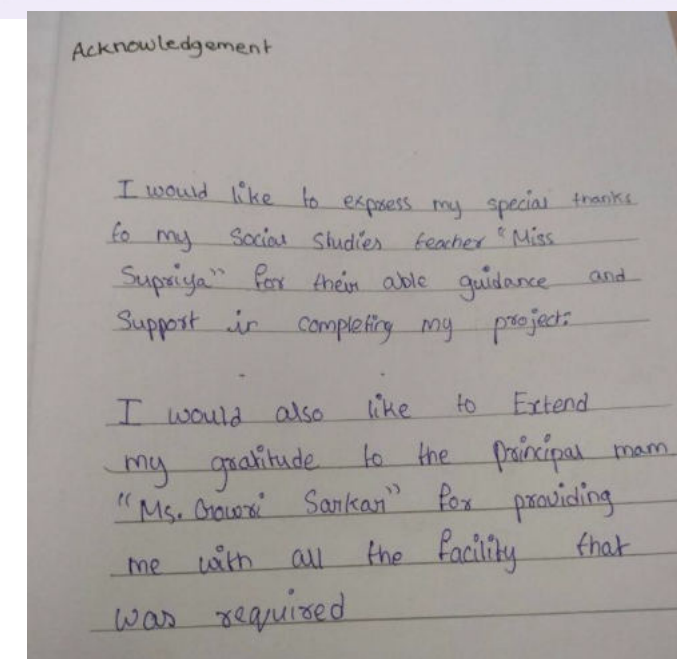 Acknowledgement
I would like to express my special thanks
to my Social Studies teacher "Miss
Supriya" for their able guidance and
Support in completing my project.
I would also like to Extend
my gratitude to the Principal mam
"Ms. Gowri Sankar" for providing
me with all the facility that
was required